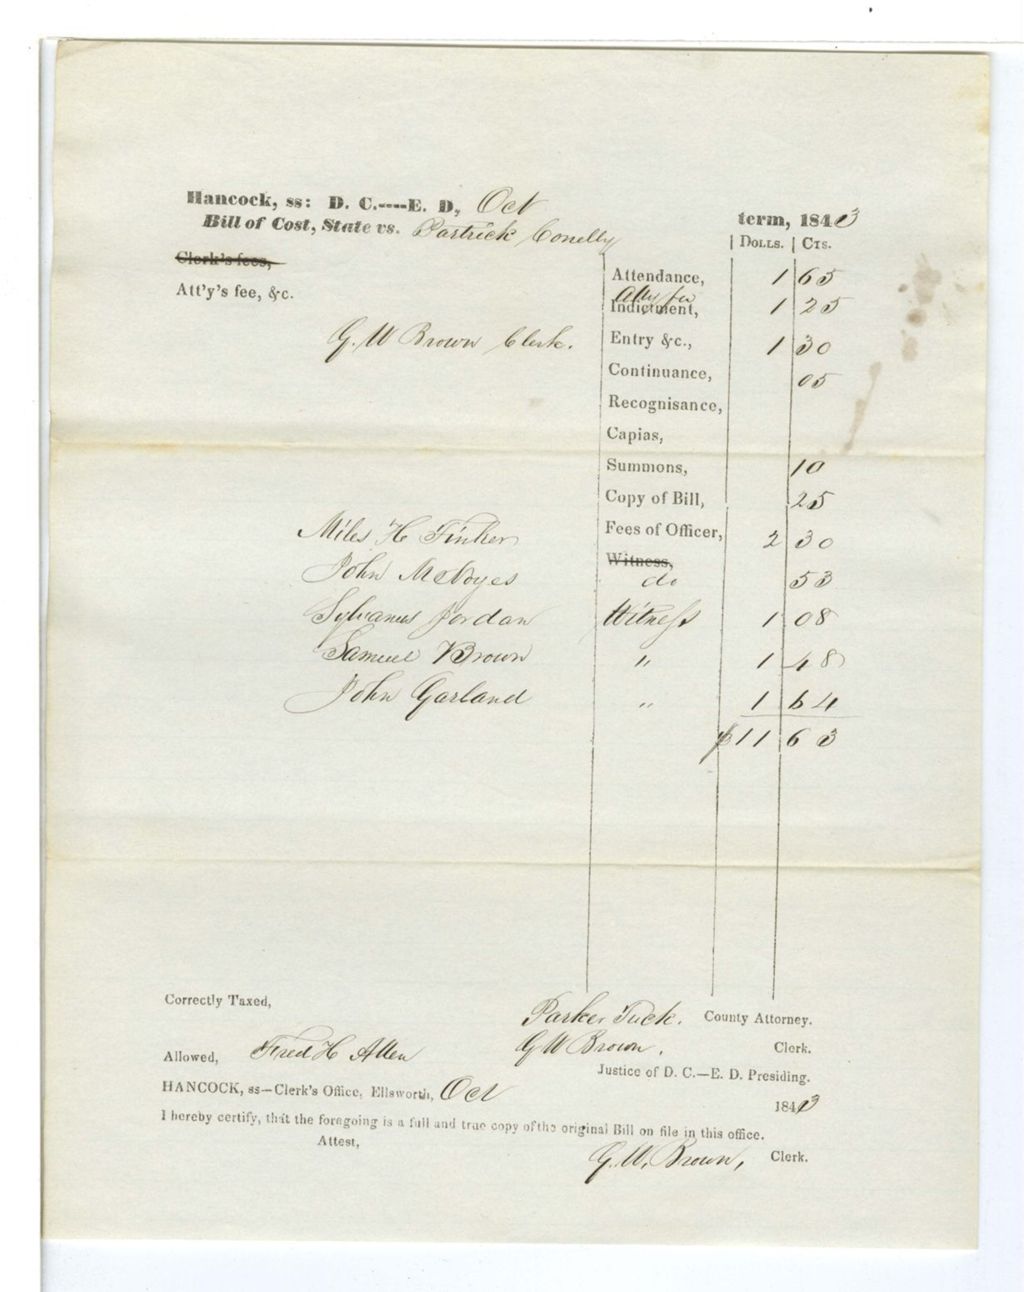 Hancock, ss: D. C.----E. D, Oct term, 1843
Bill of Cost, State vs. Partrick Conelly
| Dolls. | Cts.
Clerk's fees,
Attendance, 1 65
Att'y's fee, &c.
Atty fee
Indictment, 1 25
G. W Brown Clerk. Entry &c., 1 30
Continuance, 05
Recognisance,
Capias,
Summons, 10
Copy of Bill, 25
Miles H Tinker Fees of Officer, 2 30
Witness,
John M Noyes do 53
Sylvanus Jordan Witness 1 08
Samuel Brown " 1 48
John Garland " 1 64
$11 63
Correctly Taxed,
Parker Tuck. County Attorney.
G W Brown. Clerk.
Allowed, Fred H Allen
Justice of D. C.—E. D. Presiding.
HANCOCK, ss—Clerk's Office, Ellsworth, Oct 1843
I hereby certify, that the foregoing is a full and true copy of the original Bill on file in this office.
Attest,
G. W. Brown, Clerk.